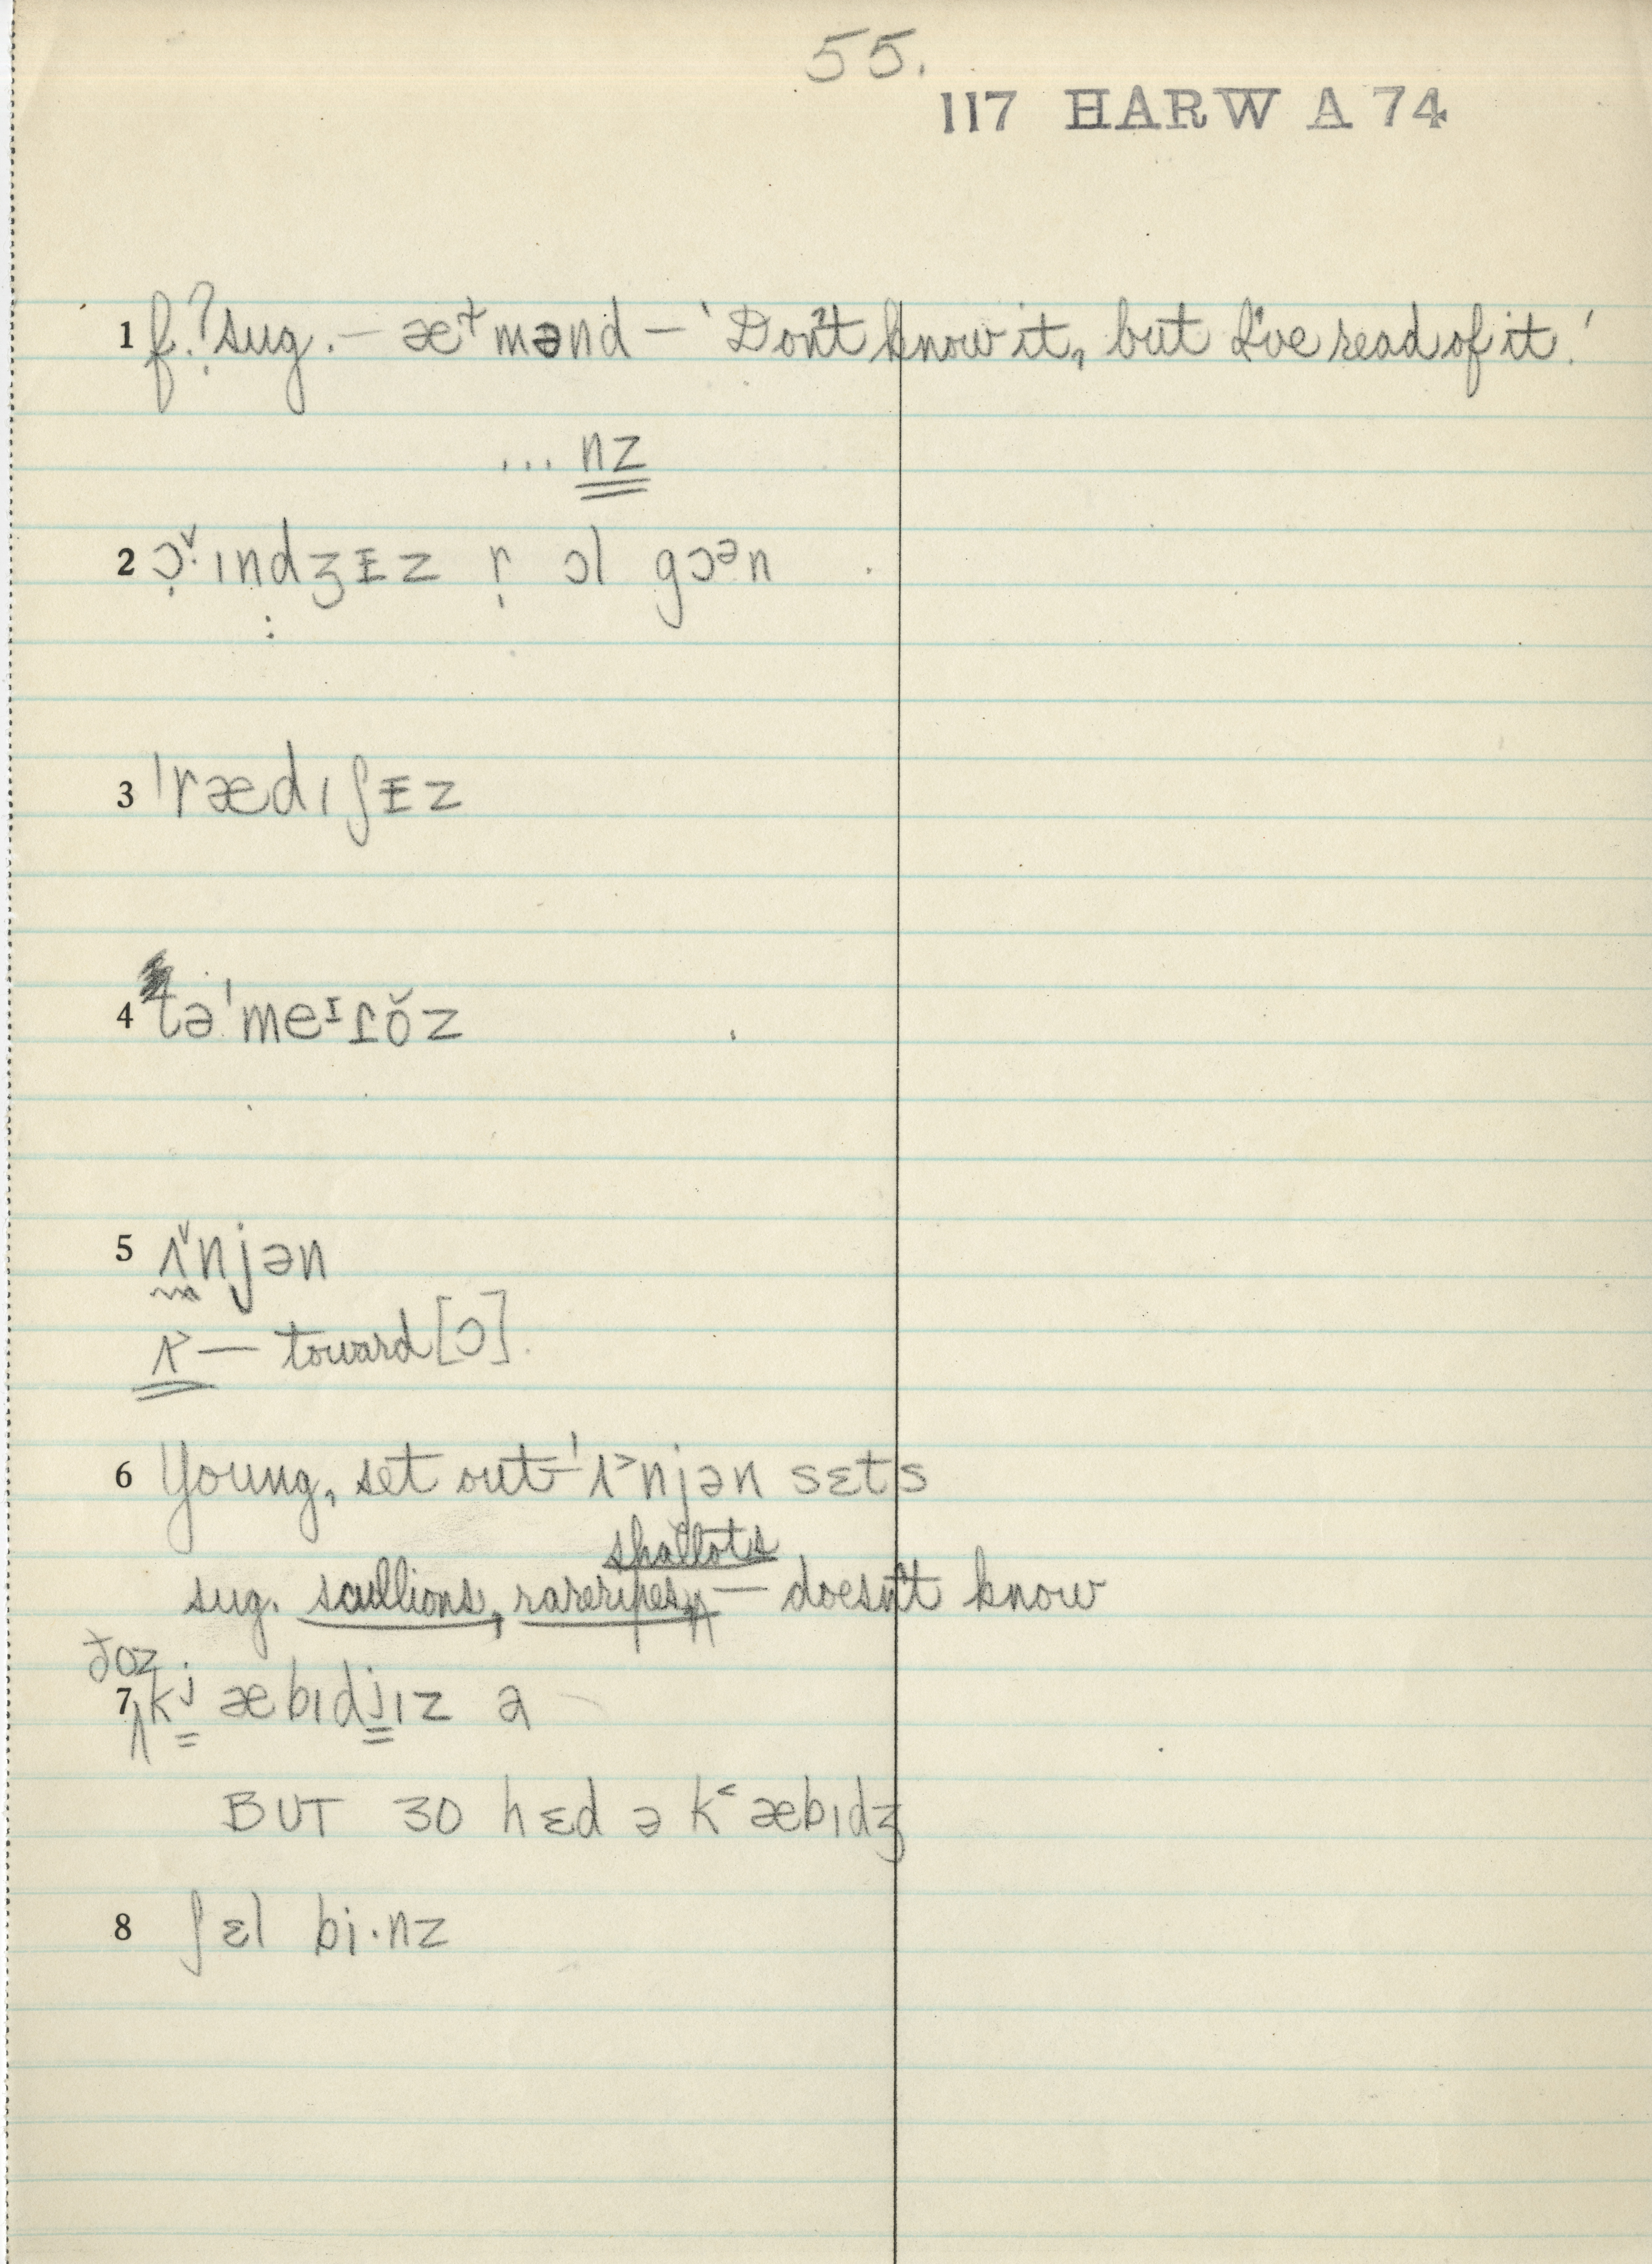 55.
117 HARW A 74
1 f.? sug. – æ˔mənd – 'Don't know it, but I've read of it.'
... nz
2 ɔ̣ˇ·ındʒɪ̵z r̩ ɔl gɔᵊn
3 ˈrædıʃɪ̵z
4 təˈmeᴵɾŏz
5 ʌˇnjən
ʌ˃ – toward [ɔ].
6 Young, set out – ˈʌ˃njən sɛts
shallots
sug. scullions, rareripes, – doesn't know
ðoz
7 kʲæbıdjız a
BUT 30 hɛd ə k˂æbıdʒ
8 ʃɛl bi·nz